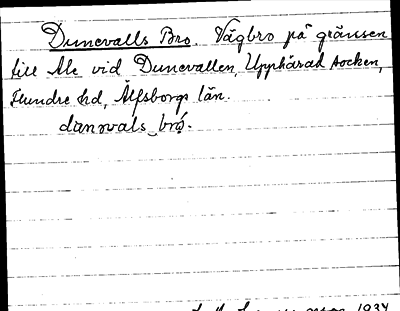 Dunevalls Bro. Vägbro på gränsen
till Ale vid Dunevallen, Upphärad socken,
Flundre hd, Älfsborgs län.
danvals brō.
1934